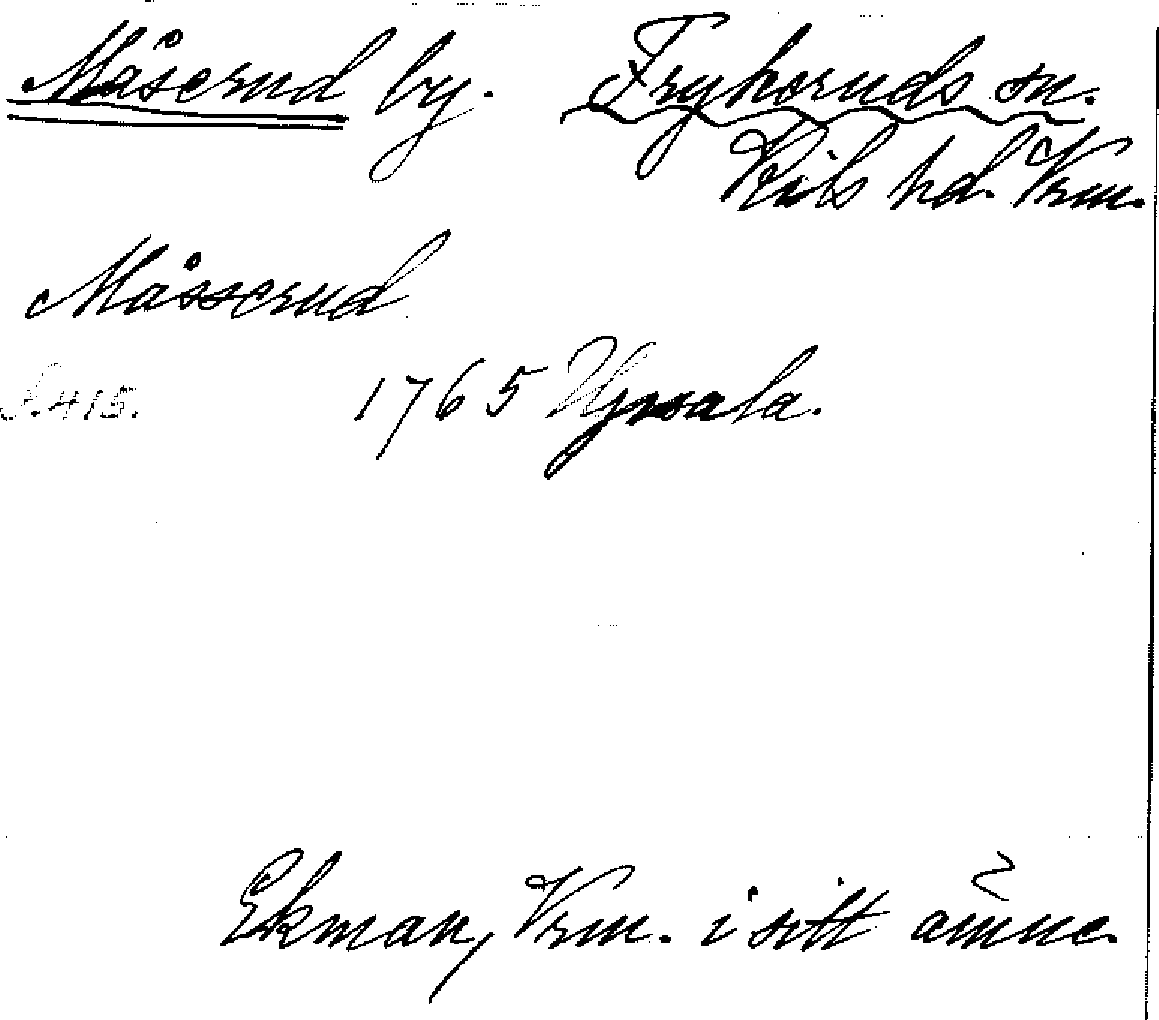 Måserud by. Frykeruds sn.
Kils hd. Vrm.
Måsserud
S. 415. 1765 Upsala.
Ekman, Vrm. i sitt ämne.